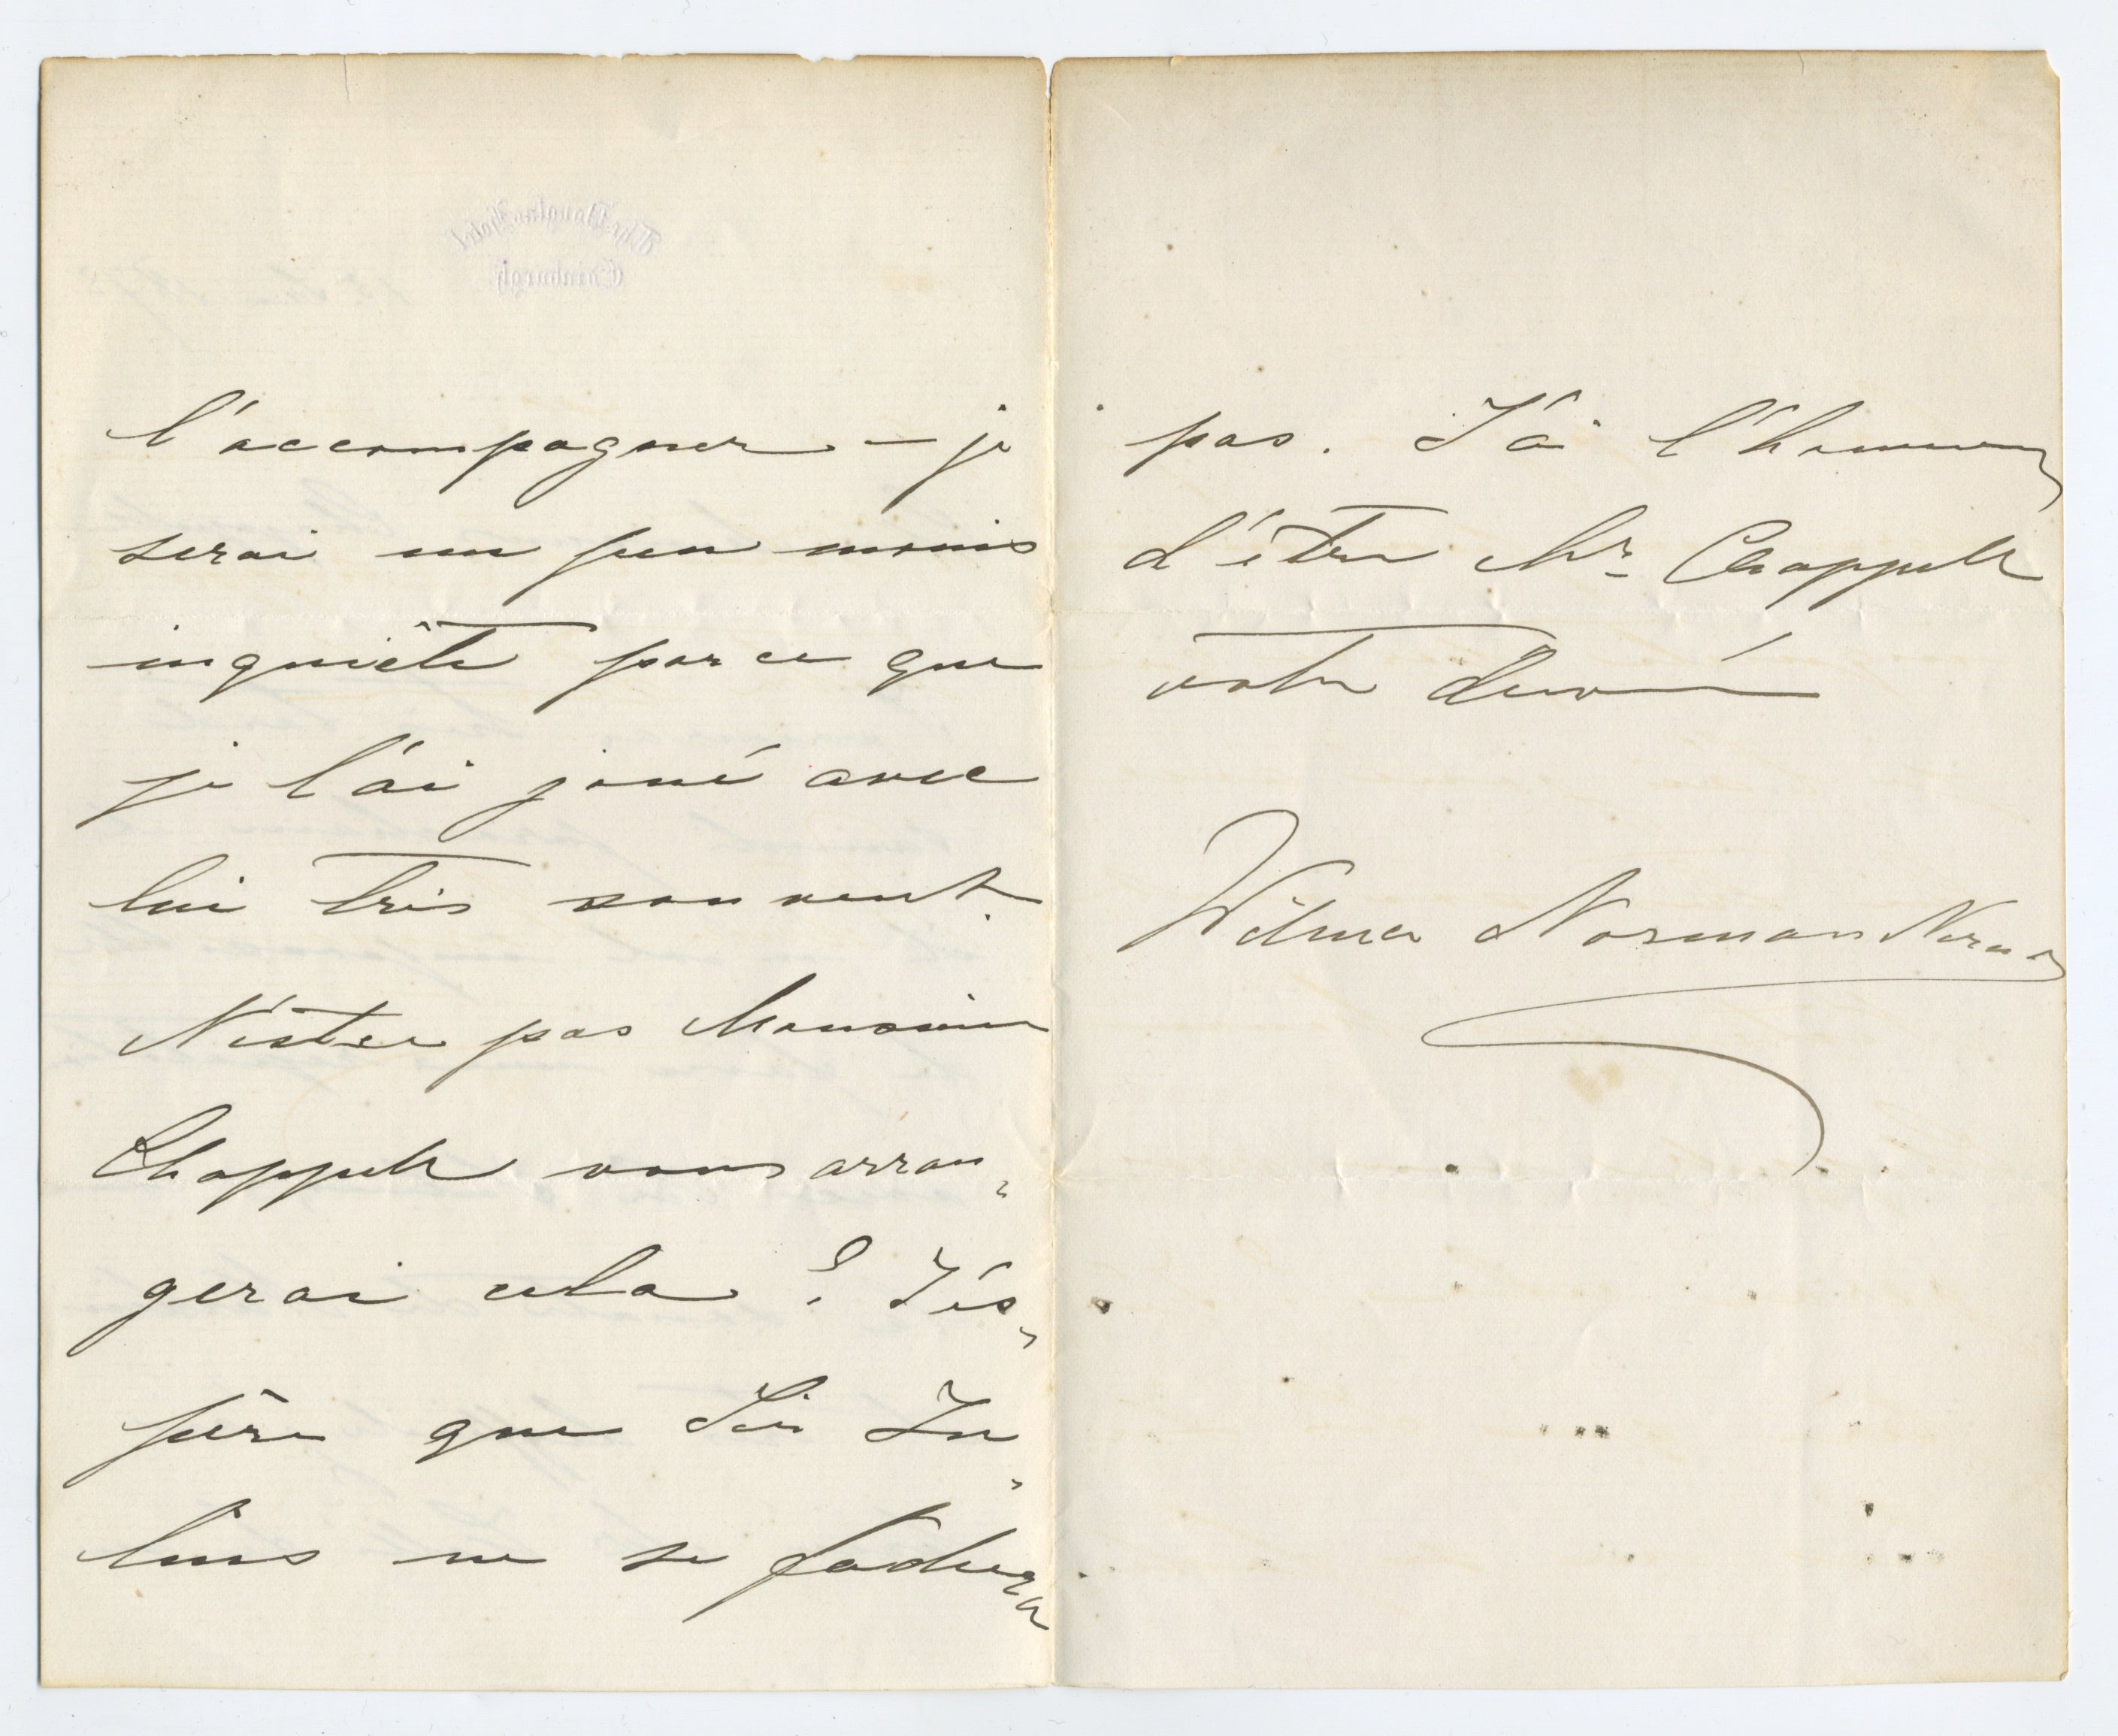 The Douglas Hotel
Edinburgh
l'accompagner – je
serai un peu moins
inquiète parce que
je l'ai joué avec
lui très souvent.
N'estce pas Monsieur
Chappell vous arran-
gerai cela? J'és-
père que Sir Ju-
lius ne se fachera
pas. J'ai l'honneur
d'être Mr. Chappell
votre devoué
Wilma Norman Neruda